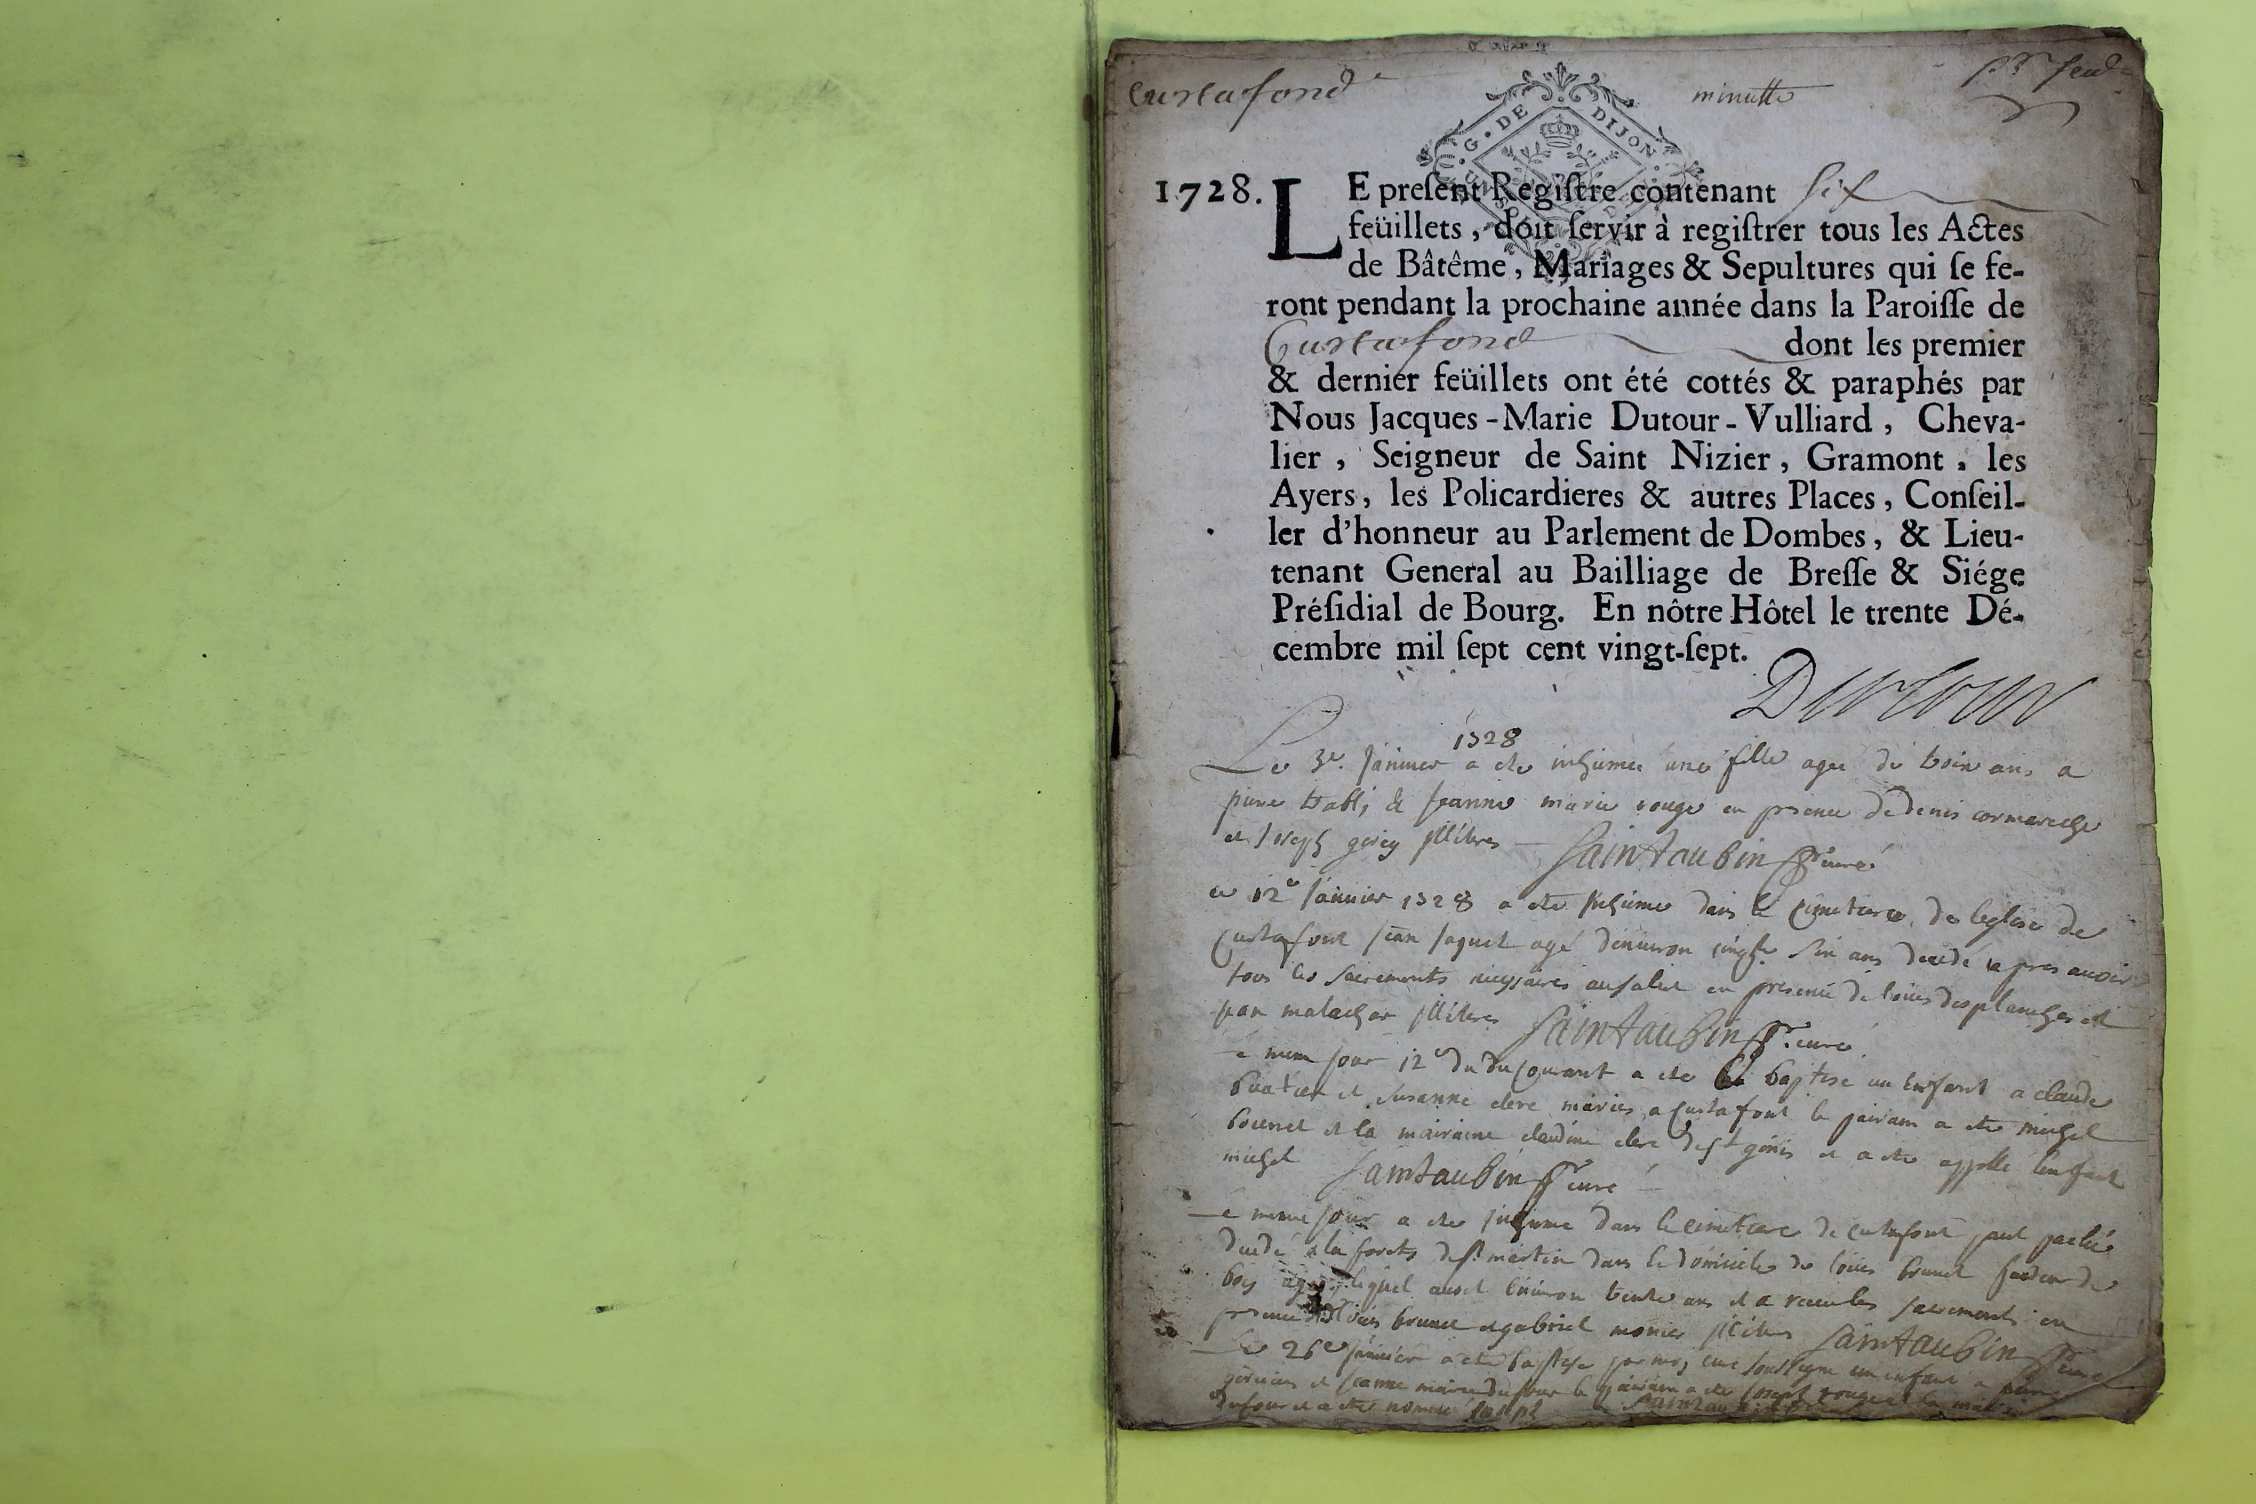 Curtafond minutte
G. DE DIJON
1728. LE preſent Regiſtre contenant six
feüillets, doit ſervir à regiſtrer tous les Actes
de Bâtême, Mariages & Sepultures qui ſe fe-
ront pendant la prochaine année dans la Paroiſſe de
Curtafond dont les premier
& dernier feüillets ont été cottés & paraphés par
Nous Jacques-Marie Dutour-Vulliard, Cheva-
lier, Seigneur de Saint Nizier, Gramont, les
Ayers, les Policardieres & autres Places, Conſeil-
ler d'honneur au Parlement de Dombes, & Lieu-
tenant General au Bailliage de Breſſe & Siége
Préſidial de Bourg. En nôtre Hôtel le trente Dé-
cembre mil ſept cent vingt-ſept.
Dutour
1728
Le 3e. Janvier a ete inhumée une fille agée de trois ans a
et Jeanne marie rouge en presence de denis cormareche
et Joseph illitères Saintaubin curé
ce 12e Janvier 1728 a ete Inhumé dans le cimetiere de leglise de
Curtafont Jean Jaquet agé denviron six ans decedé apres avoir
tous les sacrements necessaires au salut en presence de louis desplanches et
illitéres Saintaubin curé
le meme Jour 12e du courant a ete baptisé un Enfant a claude
et Susanne clere mariés a Curtafont le pairain a ete michel
et la mairaine claudine clere et a ete appellé lenfant
michel Saintaubin curé
le meme Jour a ete Inhumé dans le cimetiere de curtafont
decedé a la forets de st martin dans le domicile de louis brunet
bois lequel avoit environ trente ans et a receu les sacrements en
presence de louis brunet et gabriel monier illitéres Saintaubin curé
Le 26e Janvier a ete baptisé par moy curé soussigné un enfant a
et Jeanne marie dufour le pairain a ete Joseph rouge et la
dufour et a ete nommé Joseph